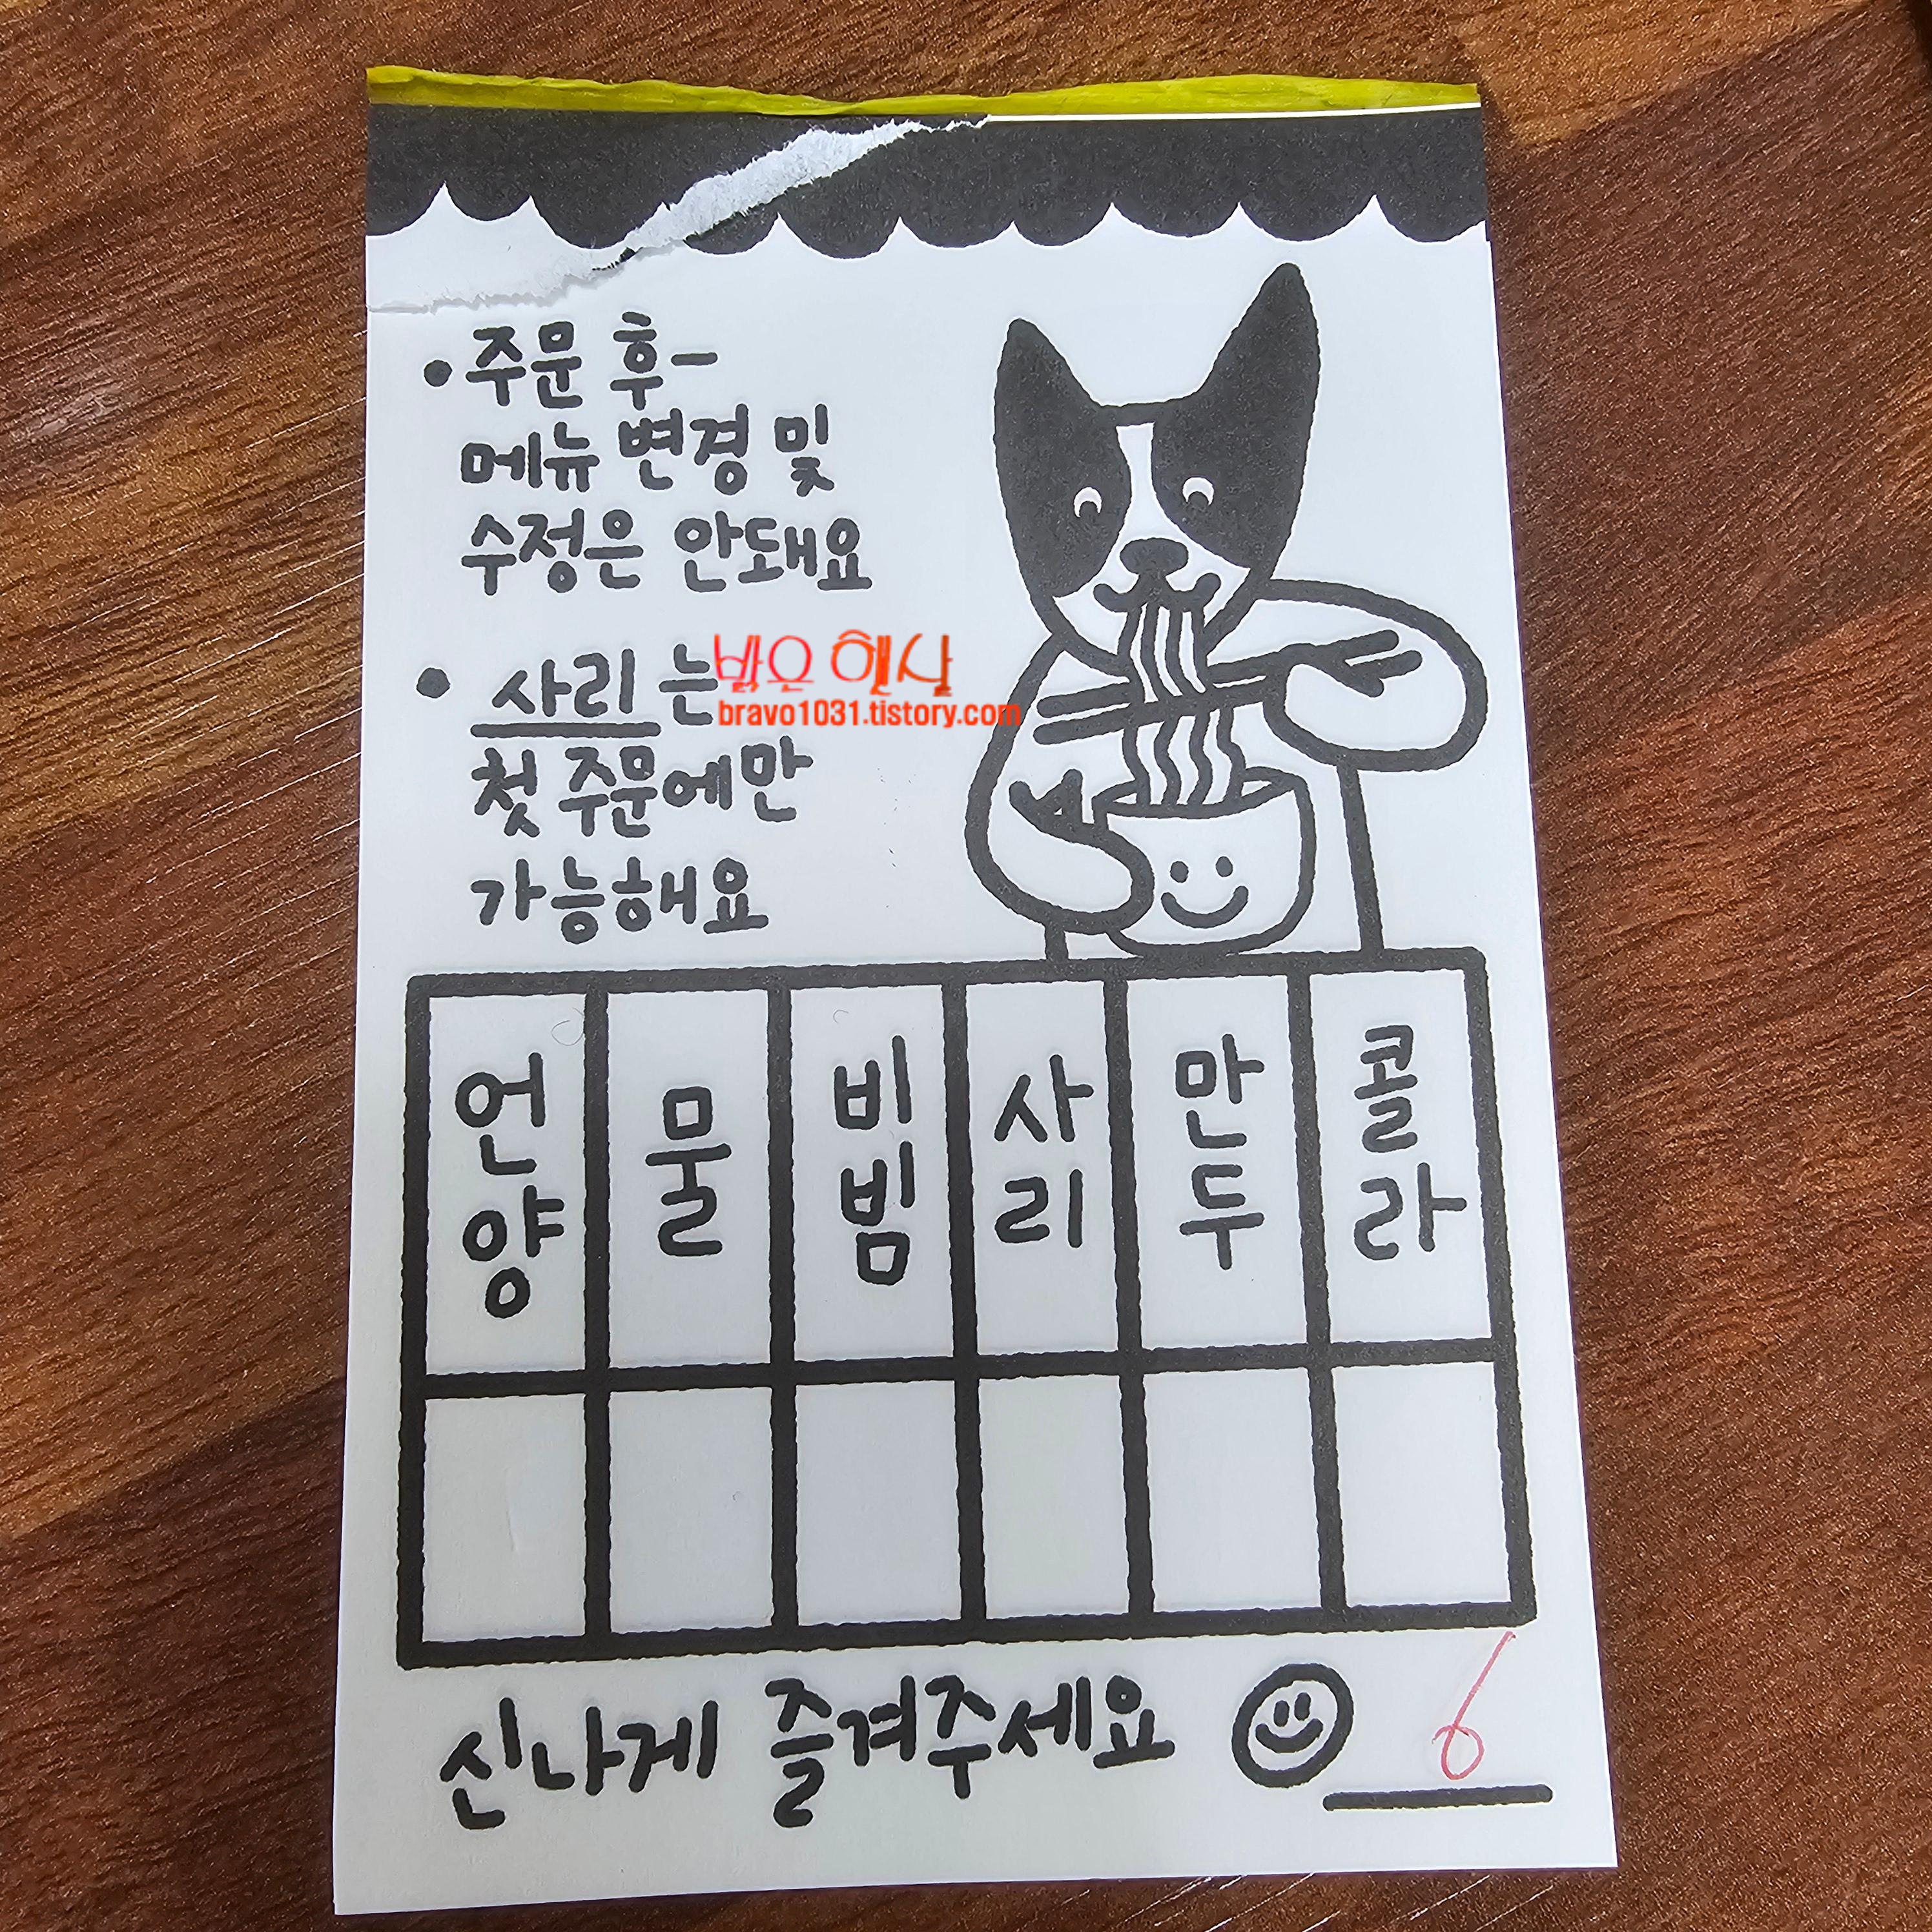 • 주문 후-
메뉴 변경 및
수정은 안돼요
• 사리는
밝은 햇살
bravo1031.tistory.com
첫 주문에만
가능해요
언양 물 비빔 사리 만두 콜라
신나게 즐겨주세요 6